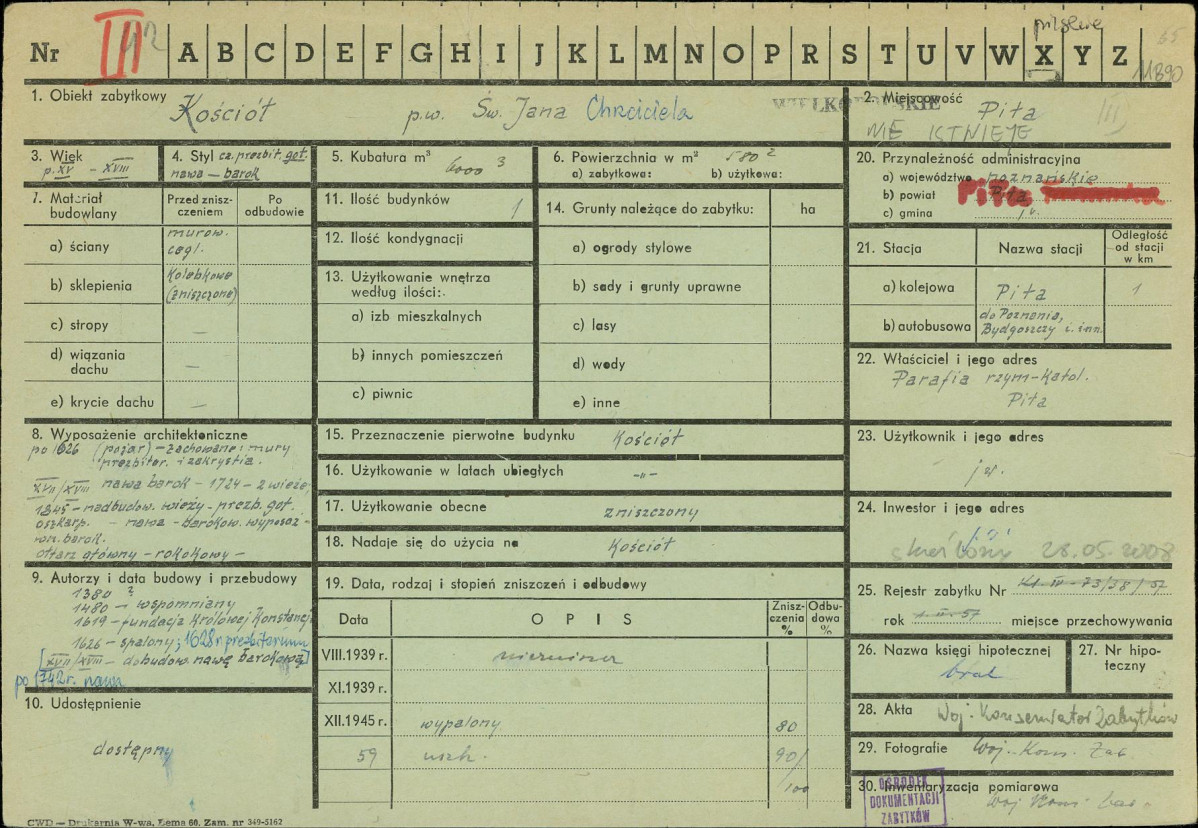 pilskie
65
11890
Nr III A B C D E F G H I J K L M N O P R S T U V W X Y Z
1. Obiekt zabytkowy Kościół p.w. Św. Jana Chrzciciela
2. Miejscowość Piła
NIE ISTNIEJE
III
3. Wiek
p. XV - XVIII
4. Styl cz. prezbit. got.
nawa - barok
5. Kubatura m³ 6000 3
6. Powierzchnia w m² 580 2
a) zabytkowa: b) użytkowa:
20. Przynależność administracyjna
a) województwo poznańskie
b) powiat Piła
c) gmina
7. Materiał budowlany
Przed zniszczeniem
Po odbudowie
a) ściany murow. cegl.
b) sklepienia Kolebkowe (zniszczone)
c) stropy —
d) wiązania dachu —
e) krycie dachu —
11. Ilość budynków 1
12. Ilość kondygnacji
13. Użytkowanie wnętrza
według ilości:
a) izb mieszkalnych
b) innych pomieszczeń
c) piwnic
14. Grunty należące do zabytku: ha
a) ogrody stylowe
b) sady i grunty uprawne
c) lasy
d) wody
e) inne
21. Stacja
Nazwa stacji
Odległość od stacji w km
a) kolejowa Piła 1
b) autobusowa do Poznania,
Bydgoszczy i inn.
22. Właściciel i jego adres
Parafia rzym-katol.
Piła
8. Wyposażenie architektoniczne
po 1626 (pożar) - zachowane: mury
prezbiter. i zakrystia.
XVII/XVIII nawa barok - 1724 - 2 wieże,
1845 - nadbudow. wieży - prezb. got.
oszkarp. - nawa - barokow. wyposaż -
wn. barok.
ołtarz główny - rokokowy -
15. Przeznaczenie pierwotne budynku Kościół
16. Użytkowanie w latach ubiegłych -"-
17. Użytkowanie obecne zniszczony
18. Nadaje się do użycia na Kościół
23. Użytkownik i jego adres
jw.
24. Inwestor i jego adres
skreślony 28.05.2008
9. Autorzy i data budowy i przebudowy
1380 ?
1480 - wspomniany
1619 - fundacja Królowej Konstancji
1626 - spalony; 1628 r. prezbiterium
[XVII/XVIII - dobudow. nawę barokową]
po 1742 r. nawa
19. Data, rodzaj i stopień zniszczeń i odbudowy
Data
OPIS
Zniszczenia %
Odbudowa %
VIII.1939 r.
XI.1939 r.
XII.1945 r. wypalony 80
59 uszk. 90/
100
25. Rejestr zabytku Nr Kl. IV - 73/38/57
rok miejsce przechowywania
26. Nazwa księgi hipotecznej
brak
27. Nr hipoteczny
28. Akta Woj. Konserwator Zabytków
29. Fotografie Woj. Kons. Zab
30. Inwentaryzacja pomiarowa
Woj Kons Zab
10. Udostępnienie
dostępny
OŚRODEK
DOKUMENTACJI
ZABYTKÓW
CWD — Drukarnia W-wa, Zema 60. Zam. nr 349-5162